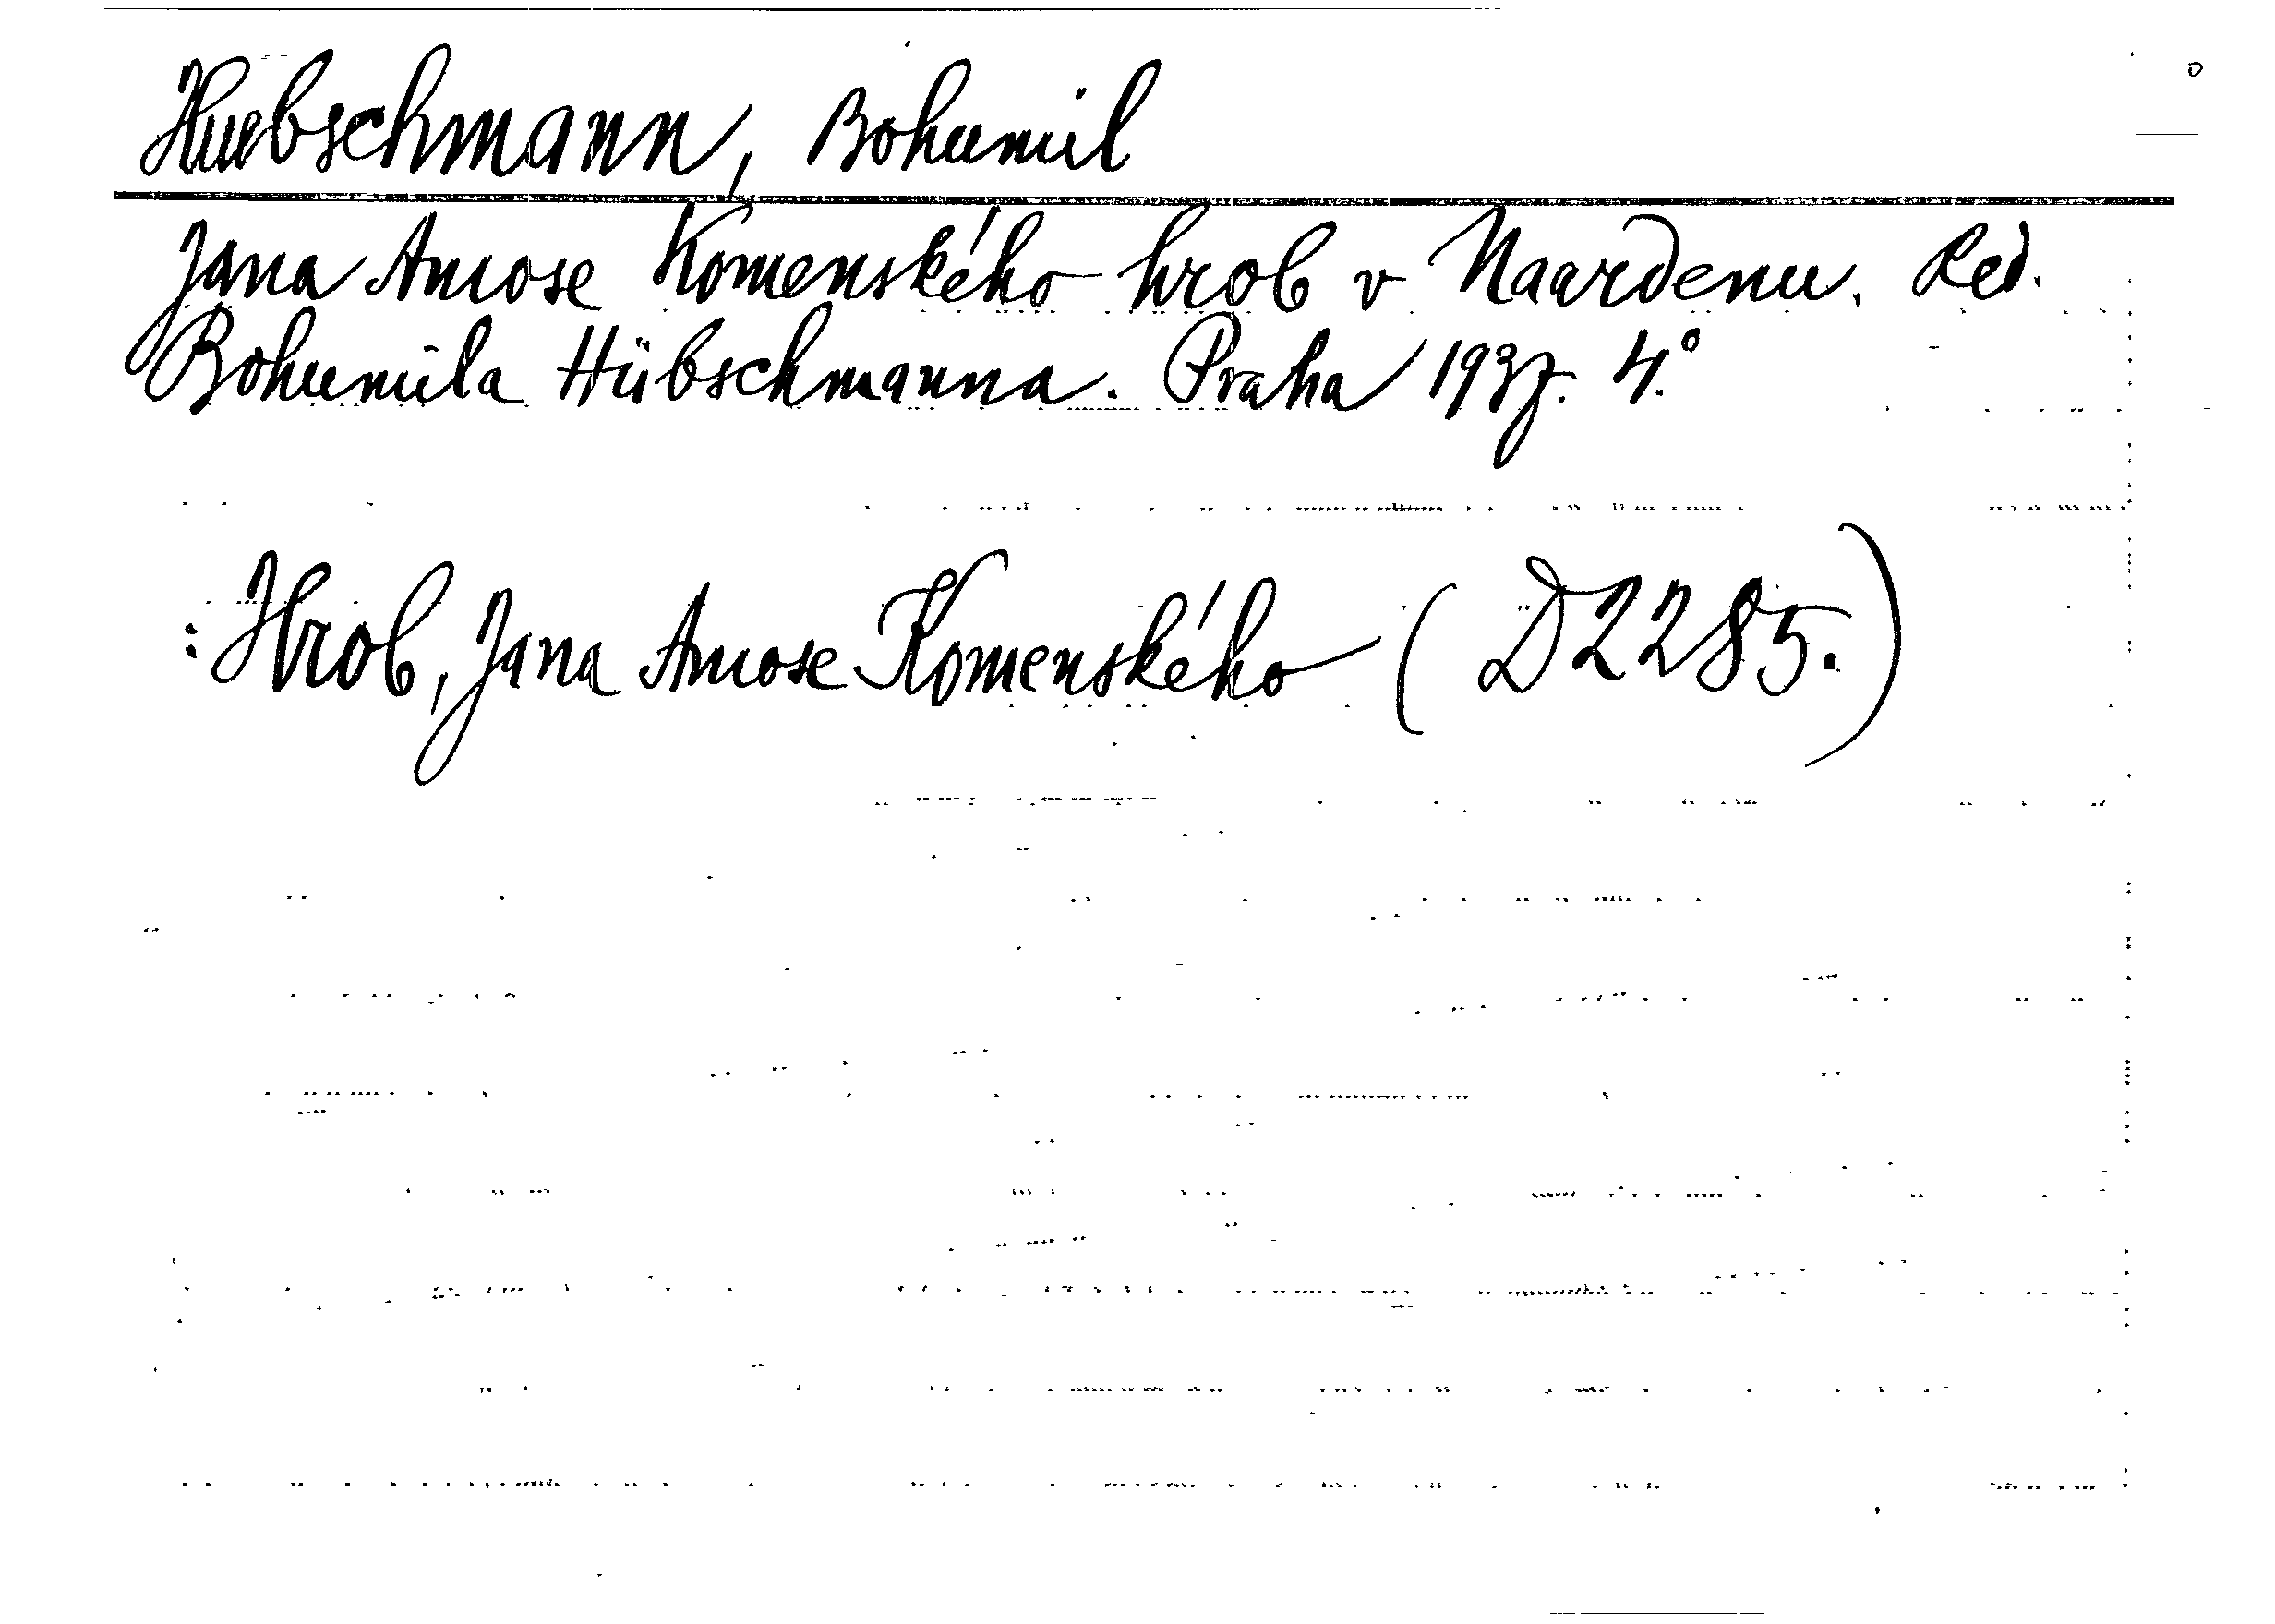 Huebschmann, Bohumil
Jana Amose Komenského hrob v Naardenu. Red.
Bohumila Hübschmanna. Praha 1937. 4.°
: Hrob, Jana Amose Komenského (D2285.)